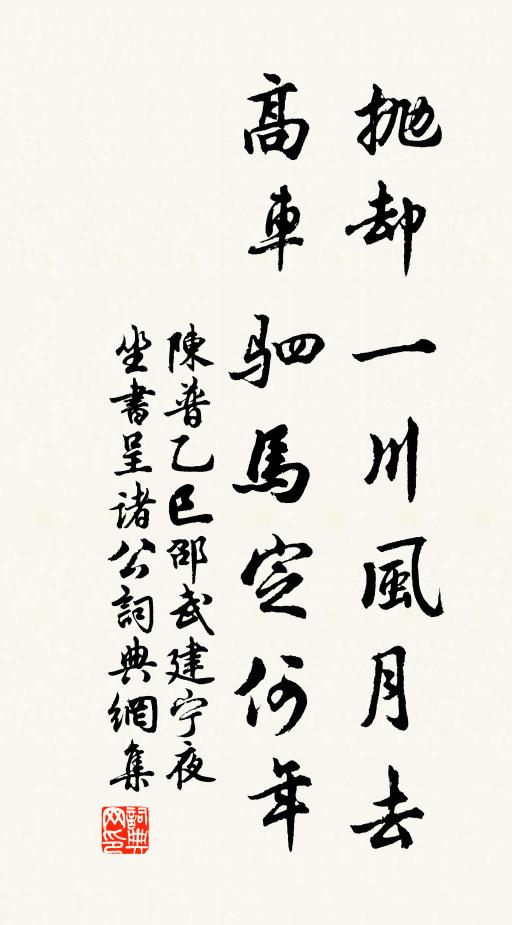 抛却一川風月去
高車駟馬定何年
陳普乙巳邵武建宁夜
坐書呈诸公詞典網集
詞典网印